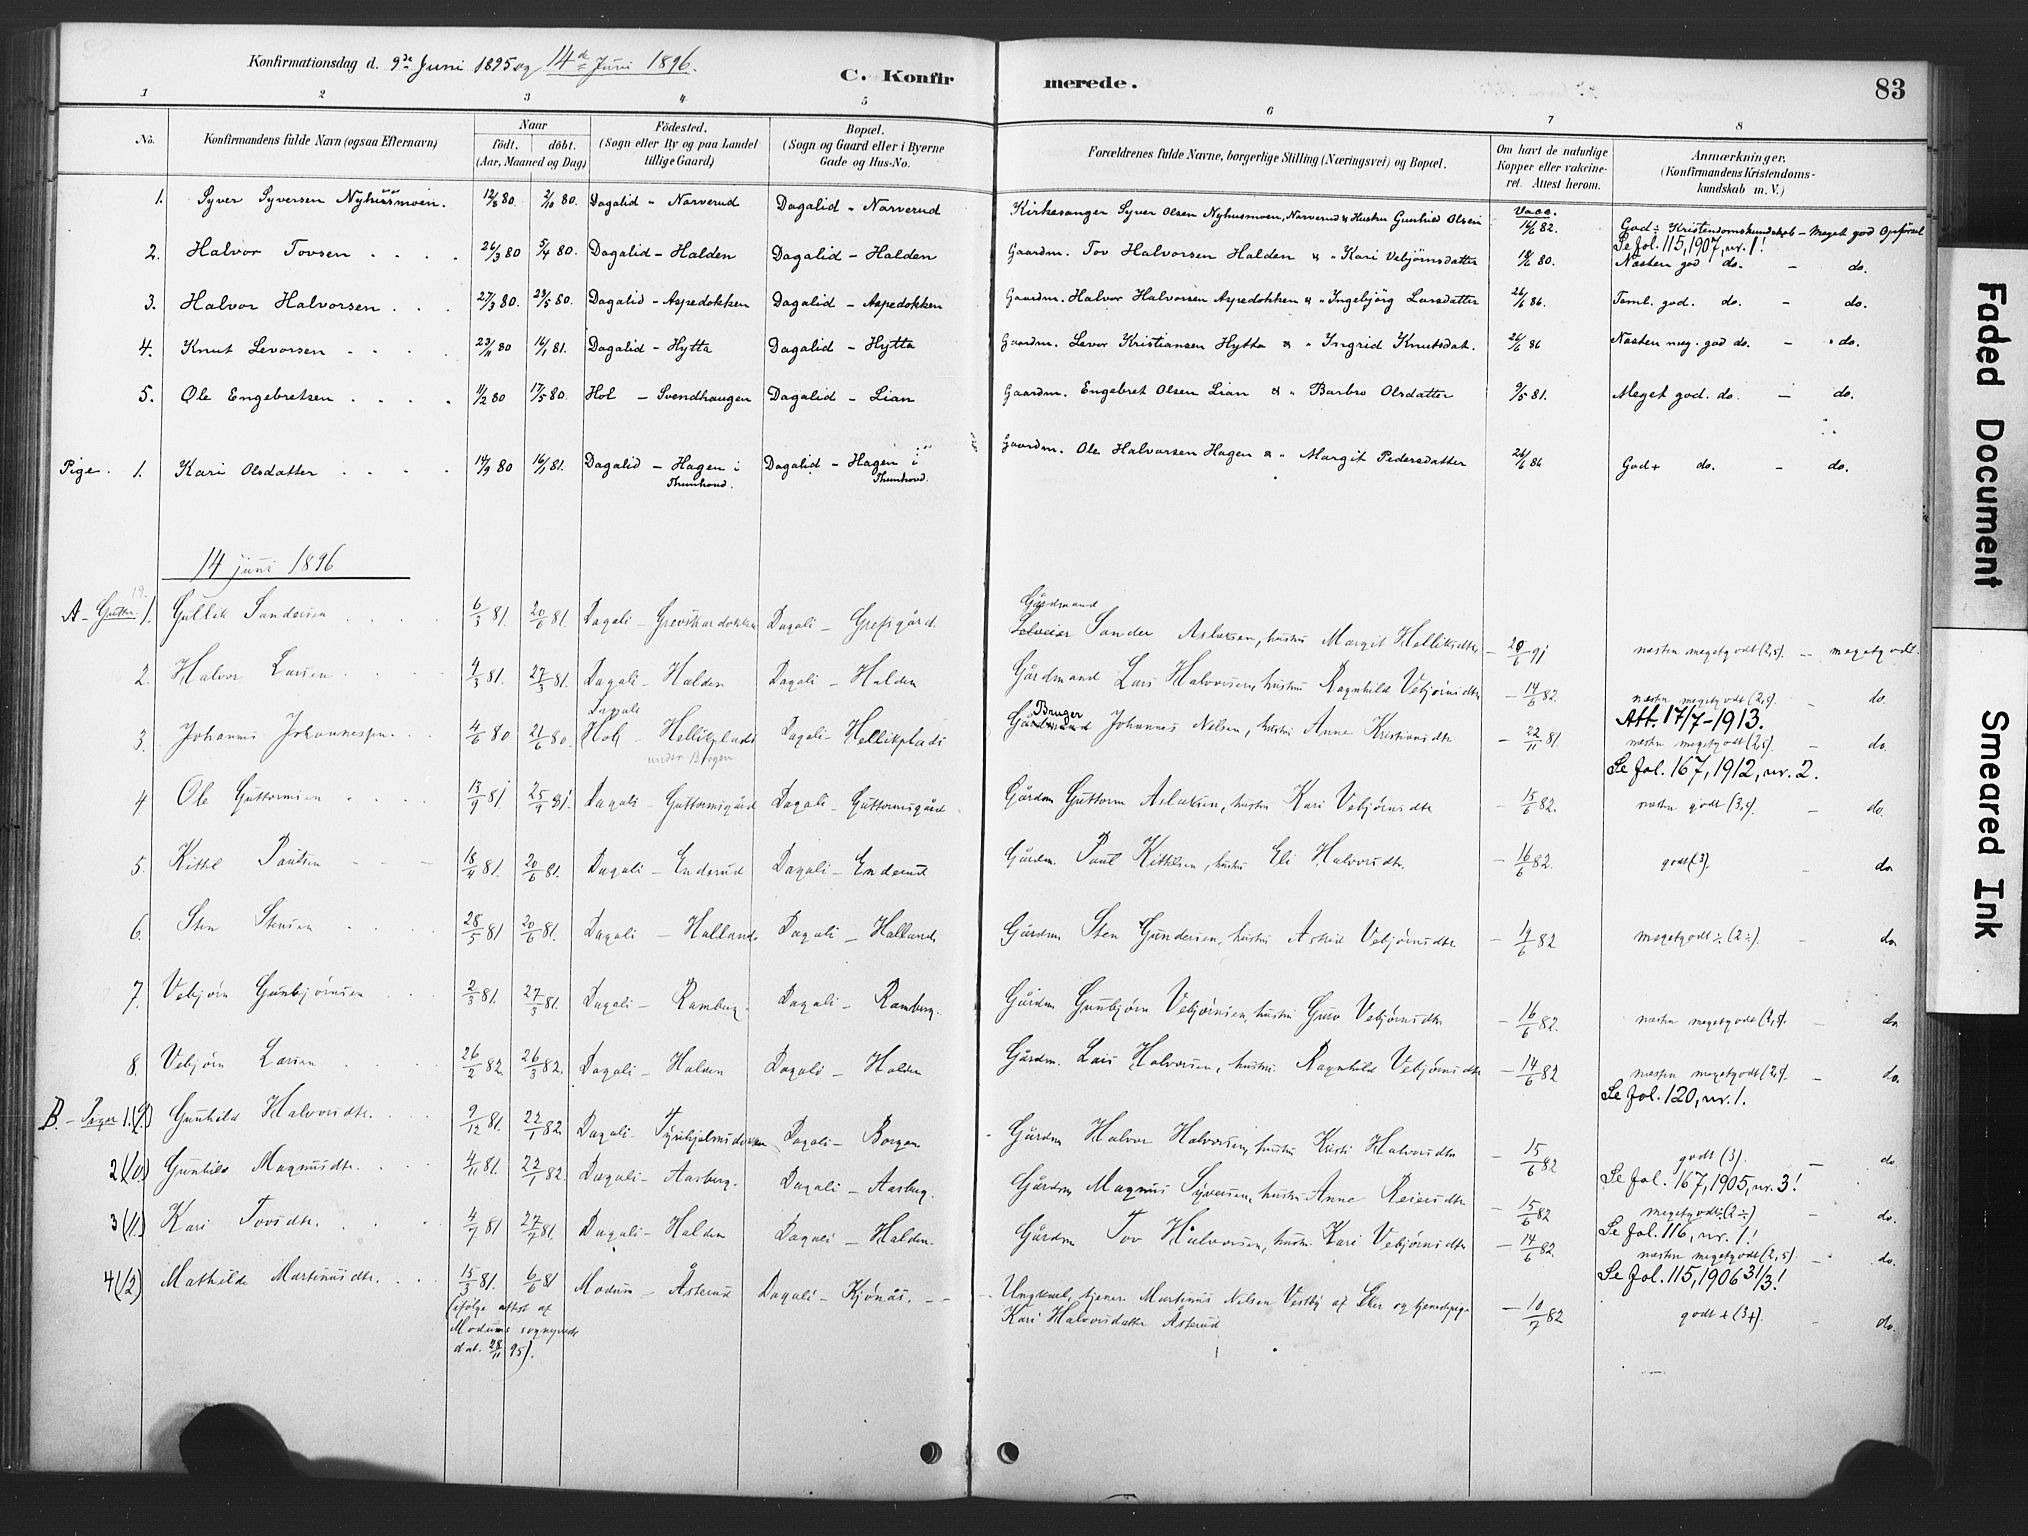 Konfirmationsdag d. 9de Juni 1895 og 14de Juni 1896.
C. Konfirmerede.
83
1 2 3 4 5 6 7 8
No.
Konfirmandens fulde Navn (ogsaa Efternavn)
Naar
födt. döbt.
(Aar, Maaned og Dag)
Födested.
(Sogn eller By og paa Landet
tillige Gaard)
Bopæl.
(Sogn og Gaard eller i Byerne
Gade og Hus-No.
Forældrenes fulde Navne, borgerlige Stilling (Næringsvei) og Bopæl.
Om havt de naturlige
Kopper eller vakcine-
ret. Attest herom.
Anmærkninger.
(Konfirmandens Kristendoms-
kundskab m. V.)
1. Syver Syversen Nyhusmoen. 12/8 80. 2/10 80. Dagalid - Narverud Dagalid - Narverud Kirkesanger Syver Olsen Nyhusmoen, Narverud & Hustru Gunhild Olsen Vacc. 14/6 82. God ÷ Kristendomskundskab - Meget god Opførsel
Se fol. 115, 1907, nr. 1!
2. Halvor Tovsen 26/3 80 5/4 80. Dagalid - Halden Dagalid - Halden Gaardm. Tov Halvorsen Halden & " Kari Vebjörnsdatter 18/6 80. Næsten god do. - do.
3. Halvor Halvorsen 27/3 80. 23/5 80. Dagalid - Aspedokken Dagalid - Aspedokken Gaardm. Halvor Halvorsen Aspedokken & " Ingebjörg Larsdatter 26/6 86. Teml. god. do. - do.
4. Knut Levorsen 23/11 80 16/1 81. Dagalid - Hytta Dagalid - Hytta Gaardm. Levor Kristiansen Hytta & " Ingrid Knutsdat. 26/6 86 Næsten meg. god do. - do.
5. Ole Engebretsen 11/2 80 17/5 80. Hol - Svendhaugen Dagalid - Lian Gaardm. Engebret Olsen Lian & " Barbro Olsdatter 9/5 81. Meget god. do. - do.
Pige. 1. Kari Olsdatter 14/9 80 16/1 81. Dagalid - Hagen i Thunhovd. Dagalid - Hagen i Thunhovd. Gaardm. Ole Halvorsen Hagen & " Margit Pedersdatter 26/6 86 God + do. - do.
14 juni 1896
A - Gutter. 1. Gullik Sandersen 6/3 81. 20/6 81. Dagali - Grevskardokken Dagali - Grefsgård. Gårdmand Sander Aslaksen, hustru Margit Helliksdtr - 20/6 91 næsten megetgodt (2,5). - megetgodt.
2. Halvor Larsen 4/3 81. 27/3 81. Dagali - Halden Dagali - Halden Gårdmand Lars Halvorsen, hustru Ragnhild Vebjørnsdtr - 14/6 82. næsten megetgodt (2,5). - do.
Att. 17/7-1913.
3. Johannes Johannessen 4/6 80 21/6 80. Dagali Hol - Hellikplads under Borgen Dagali - Hellikplads Bruger Gårdmand Johannes Nelsen, hustru Anne Kristiansdtr - 22/11 81. næsten megetgodt (2,5). - do.
Se fol. 167, 1912, nr. 2.
4 Ole Guttormsen 13/9 81 25/9 81. Dagali - Guttormsgård Dagali - Guttormsgård Gårdm Guttorm Aslaksen, hustru Kari Vebjørnsdtr - 15/6 82. næsten godt (3,5). - do.
5. Kittil Paulsen 18/4 81. 20/6 81. Dagali - Enderud Dagali - Enderud Gårdm. Paul Kittilsen, hustru Eli Halvorsdtr. - 16/6 82. godt (3). - do
6. Sten Stensen 28/5 81 20/6 81. Dagali - Halland Dagali - Hallands Gårdm Sten Gundersen, hustru Astrid Vebjørnsdtr - 14/6 82 megetgodt ÷ (2÷). - do
7. Vebjørn Gunbjørnsen 2/3 81. 27/3 81. Dagali - Ramberg. Dagali - Ramberg. Gårdm Gunbjørn Vebjørnsen, hustru Guro Vebjørnsdtr - 16/6 82. næsten megetgodt (2,5). - do
8. Vebjørn Larsen 26/2 82. 26/3 82. Dagali - Halden Dagali - Halden Gårdm. Lars Halvorsen, hustru Ragnhild Vebjørnsdtr - 14/6 82 næsten megetgodt (2,5). - do.
Se fol. 120, nr. 1.
B. - Piger 1. (9.) Gunhild Halvorsdtr. 9/12 81. 22/1 82. Dagali - Dagali - Borgen Gårdm Halvor Halvorsen, hustru Kristi Halvorsdtr - 15/6 82 godt (3). - do.
Se fol. 167, 1905, nr. 3!
2 (10.) Gunhild Magnusdtr. 4/11 81. 22/1 82. Dagali - Aasberg. Dagali - Aasberg. Gårdm Magnus Syversen, hustru Anne Reiersdtr - 15/6 82 megetgodt ÷ (2÷) - do.
Se fol. 116, nr. 1!
3 (11.) Kari Tovsdtr. 4/7 81 27/7 81. Dagali - Halden Dagali - Halden. Gårdm Tov Halvorsen, hustru Kari Vebjørnsdtr - 14/6 82. næsten megetgodt (2,5) - do.
Se fol. 115, 1906 31/3!
4 (12) Mathilde Martinusdtr. 15/3 81. 6/6 81 Modum - Åsterud Dagali - Kjønås. - - Ungkarl, tjener Martinus Nelsen Vestby af Eker og tjenestepige - 10/7 82 godt + (3+). - do.
Kari Halvorsdatter Åsterud
(ifølge attest af
Modums sogneprest
dat. 28/11 95).
Faded Document
Smeared Ink